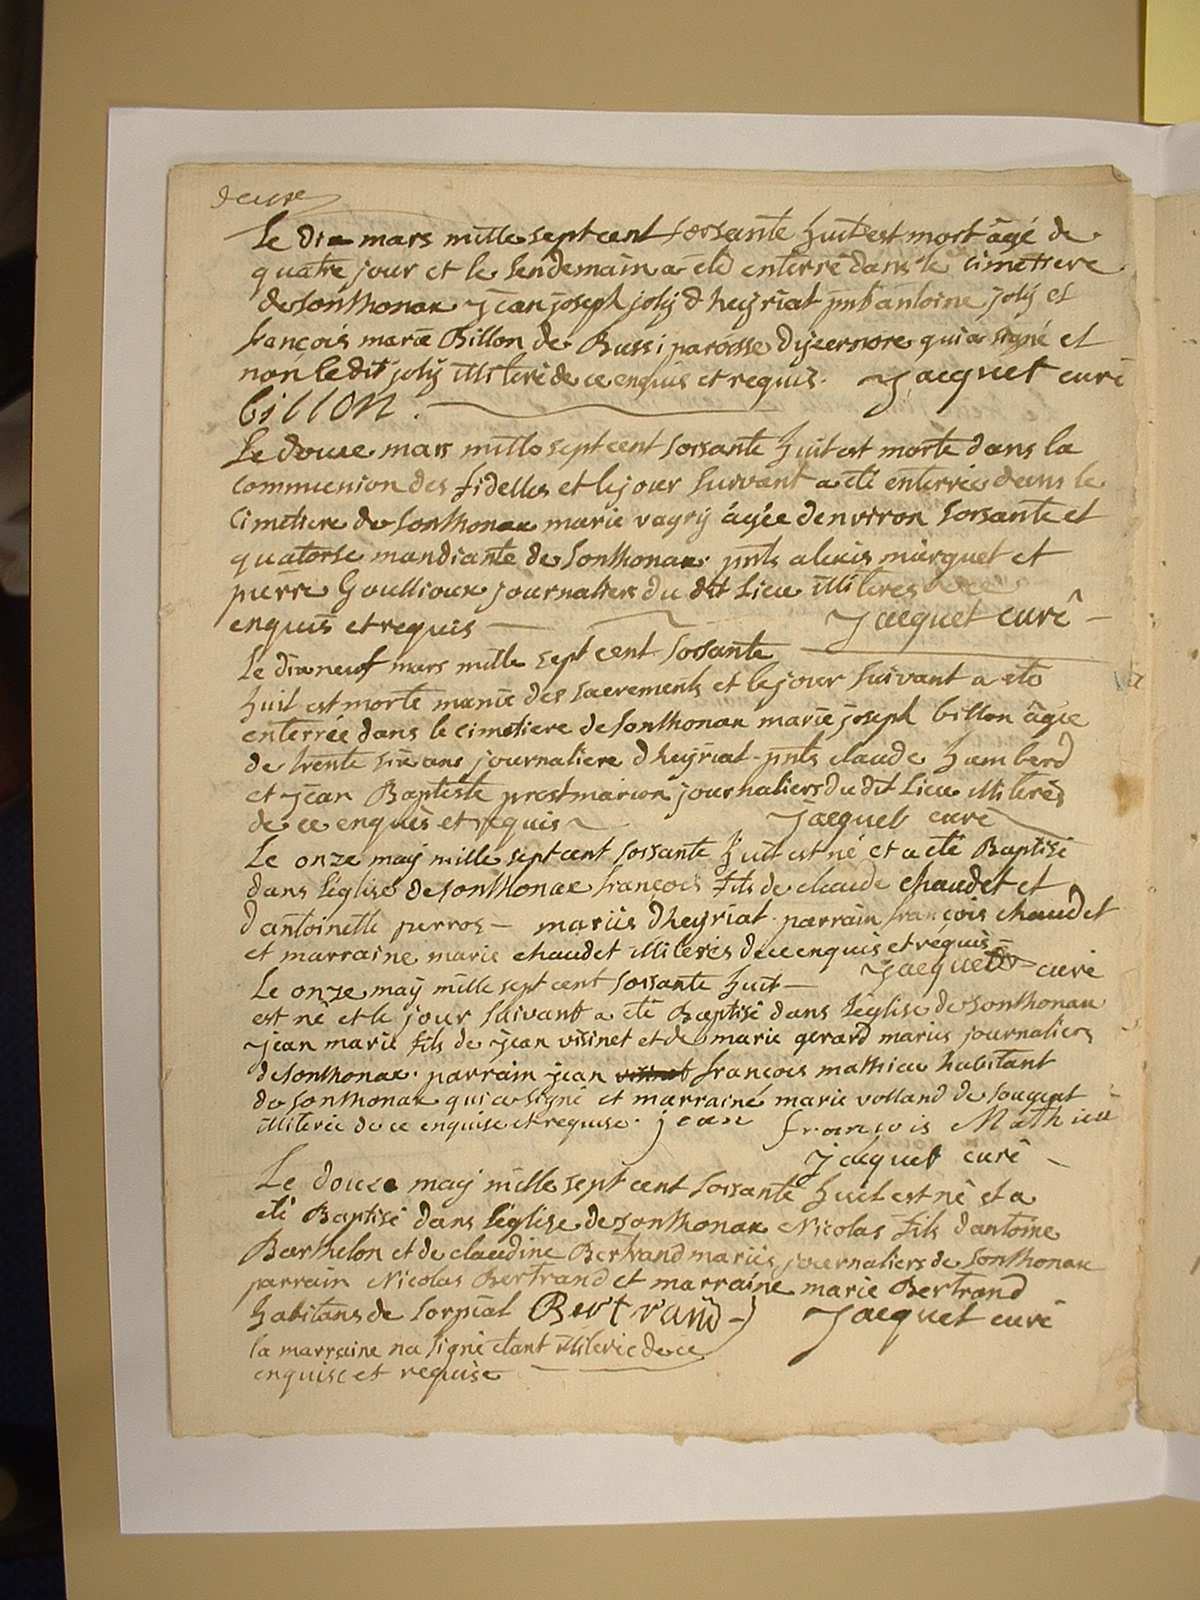 deuxe
Le dix mars mille sept cent soisante huit est mort âgé de
quatre jour et le lendemain a eté enterré dans le cimettere
de Sonthonax jean joseph joly d heyriat pnts antoine joly et
françois marie Billon de Bussi paroisse d'ijzernore qui a signé et
non ledit joly illiteré de ce enquis et requis. Jacquet curé
billon.
Le douze mars mille sept cent soisante huit est morte dans la
communion des fidelles et le jour suivant a eté enterrée dans le
cimetiere de Sonthonax marie vagry âgée denviron soisante et
quatorse mandiante de Sonthonax. pnts alexis murguet et
pierre Goullioux journaliers du dit Lieu illiteres de ce
enquis et requis Jacquet curé
Le dix neuf mars mille sept cent soisante
huit est morte munie des sacrements et le jour suivant a eté
enterrée dans le cimetiere de Sonthonax marie joseph billon âgée
de trente six ans journaliere d heyriat pnts claude humberd
et jean Baptiste prost marion journaliers du dit Lieu illiterés
de ce enquis et requis Jacquet curé
Le onze maij mille sept cent soisante huit est né et a eté Baptisé
dans l'église de Sonthonax françois fils de claude chaudet et
d antoinette pierros mariés d heyriat parrain françois chaudet
et marraine marie chaudet illiterés de ce enquis et requis
Jacquet curé
Le onze maij mille sept cent soisante huit
est né et le jour suivant a eté Baptisé dans l'église de Sonthonax
jean marie fils de jean visinet et de marie gerard mariés journaliers
de Sonthonax. parrain jean visinet francois mathieu habitant
de Sonthonax qui a signé et marraine marie volland de Sougeat
illiterée de ce enquise et requise. jean françois Mathieu
Jacquet curé
Le douze maij mille sept cent soisante huit est né et a
eté Baptisé dans l'église de Sonthonax Nicolas fils d antoine
Barthelon et de claudine Bertrand mariés journaliers de Sonthonax
parrain Nicolas Bertrand et marraine marie Bertrand
habitans de Sorpiat Bertrand Jacquet curé
la marraine na signé etant illiterée de ce
enquise et requise